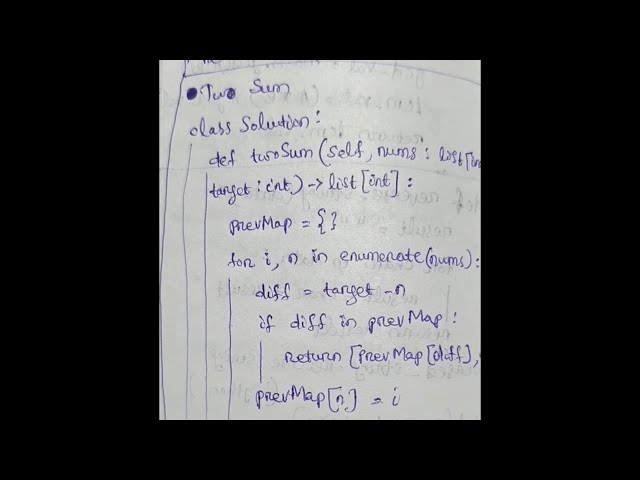 Two Sum
class Solution:
def twoSum(self, nums: list[in
target: int,) -> list[int]:
prevMap = {}
for i, n in enumerate(nums):
diff = target - n
if diff in prevMap:
return [prevMap[diff],
prevMap[n] = i